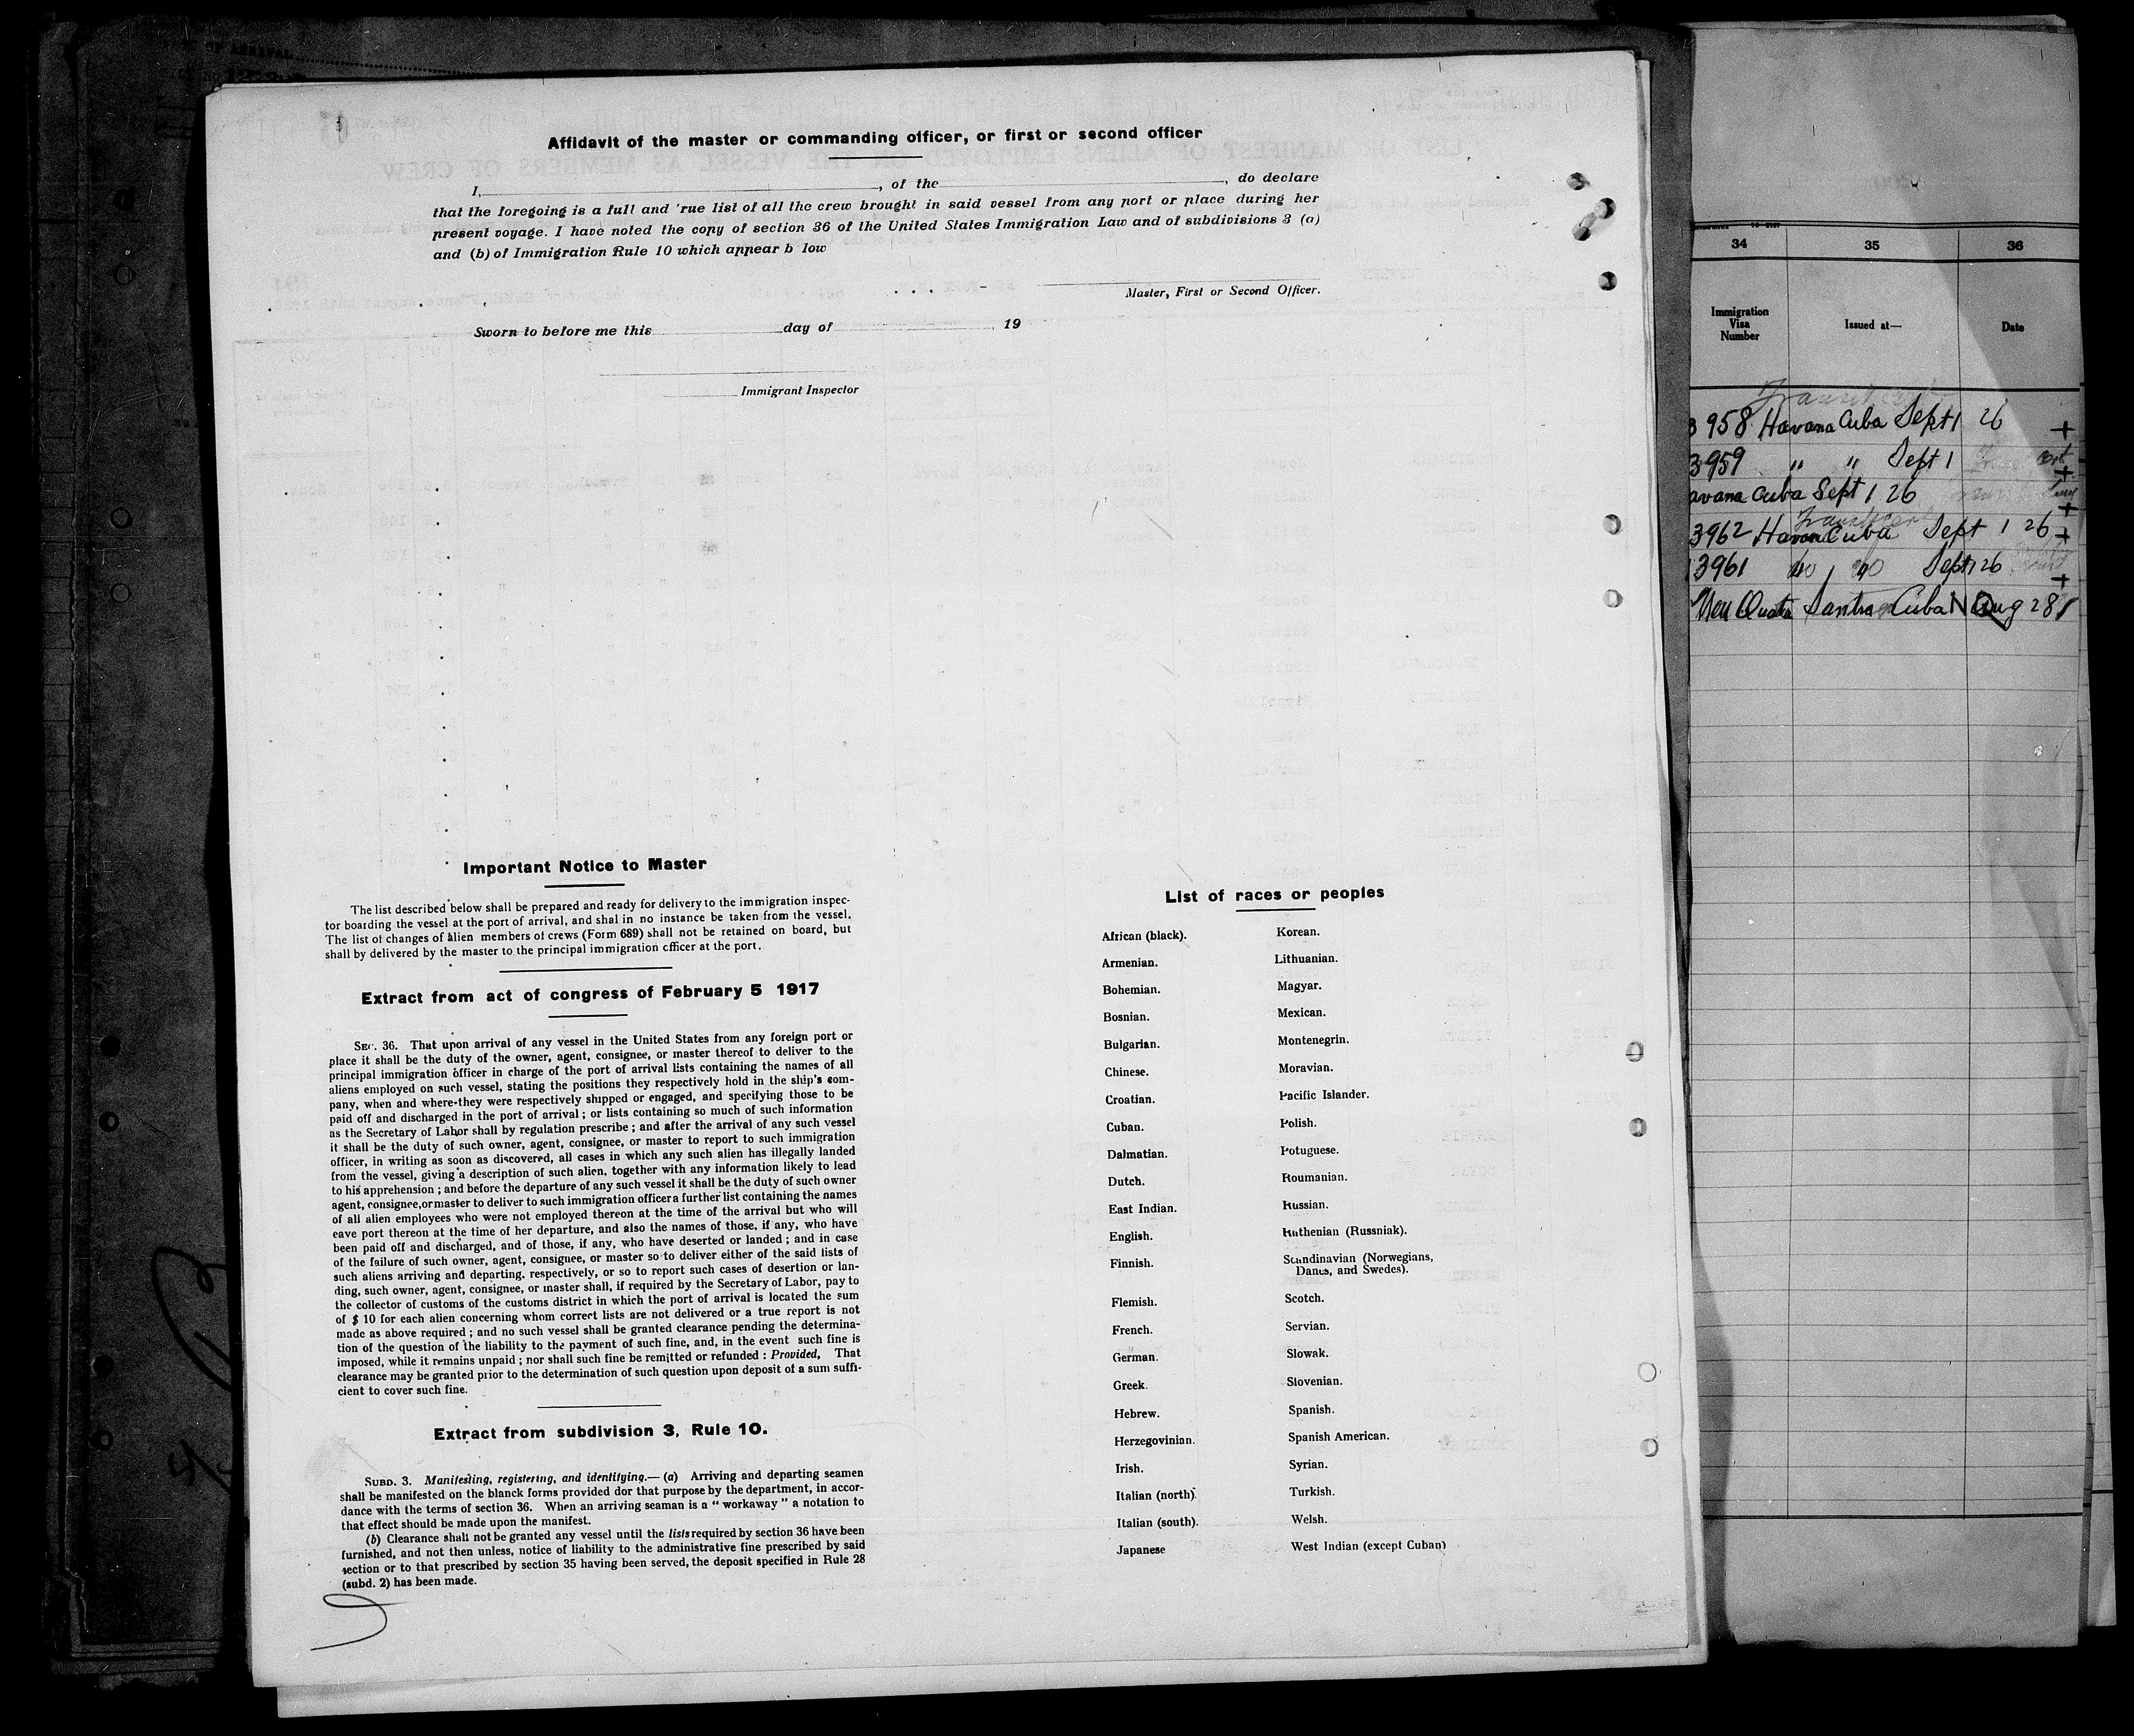 Affidavit of the master or commanding officer, or first or second officer
I, , of the , do declare
that the foregoing is a full and 'rue list of all the crew brought in said vessel from any port or place during her
present voyage. I have noted the copy of section 36 of the United States Immigration Law and of subdivisions 3 (a)
and (b) of Immigration Rule 10 which appear b low
Master, First or Second Officer.
Sworn to before me this day of 19
Immigrant Inspector
Important Notice to Master
The list described below shall be prepared and ready for delivery to the immigration inspec-
tor boarding the vessel at the port of arrival, and shal in no instance be taken from the vessel.
The list of changes of alien members of crews (Form 689) shall not be retained on board, but
shall by delivered by the master to the principal immigration officer at the port.
Extract from act of congress of February 5 1917
SEC. 36. That upon arrival of any vessel in the United States from any foreign port or
place it shall be the duty of the owner, agent, consignee, or master thereof to deliver to the
principal immigration officer in charge of the port of arrival lists containing the names of all
aliens employed on such vessel, stating the positions they respectively hold in the ship's com-
pany, when and where they were respectively shipped or engaged, and specifying those to be
paid off and discharged in the port of arrival ; or lists containing so much of such information
as the Secretary of Labor shall by regulation prescribe ; and after the arrival of any such vessel
it shall be the duty of such owner, agent, consignee, or master to report to such immigration
officer, in writing as soon as discovered, all cases in which any such alien has illegally landed
from the vessel, giving a description of such alien, together with any information likely to lead
to his apprehension ; and before the departure of any such vessel it shall be the duty of such owner
agent, consignee, or master to deliver to such immigration officer a further list containing the names
of all alien employees who were not employed thereon at the time of the arrival but who will
eave port thereon at the time of her departure, and also the names of those, if any, who have
been paid off and discharged, and of those, if any, who have deserted or landed ; and in case
of the failure of such owner, agent, consignee, or master so to deliver either of the said lists of
such aliens arriving and departing, respectively, or so to report such cases of desertion or lan-
ding, such owner, agent, consignee, or master shall, if required by the Secretary of Labor, pay to
the collector of customs of the customs district in which the port of arrival is located the sum
of $ 10 for each alien concerning whom correct lists are not delivered or a true report is not
made as above required ; and no such vessel shall be granted clearance pending the determina-
tion of the question of the liability to the payment of such fine, and, in the event such fine is
imposed, while it remains unpaid ; nor shall such fine be remitted or refunded : Provided, That
clearance may be granted prior to the determination of such question upon deposit of a sum suffi-
cient to cover such fine.
Extract from subdivision 3, Rule 10.
SUBD. 3. Manifesting, registering, and identifying.— (a) Arriving and departing seamen
shall be manifested on the blanck forms provided dor that purpose by the department, in accor-
dance with the terms of section 36. When an arriving seaman is a “ workaway ” a notation to
that effect should be made upon the manifest.
(b) Clearance shall not be granted any vessel until the lists required by section 36 have been
furnished, and not then unless, notice of liability to the administrative fine prescribed by said
section or to that prescribed by section 35 having been served, the deposit specified in Rule 28
(subd. 2) has been made.
List of races or peoples
African (black).
Armenian.
Bohemian.
Bosnian.
Bulgarian.
Chinese.
Croatian.
Cuban.
Dalmatian.
Dutch.
East Indian.
English.
Finnish.
Flemish.
French.
German.
Greek.
Hebrew.
Herzegovinian.
Irish.
Italian (north).
Italian (south).
Japanese
Korean.
Lithuanian.
Magyar.
Mexican.
Montenegrin.
Moravian.
Pacific Islander.
Polish.
Potuguese.
Roumanian.
Russian.
Ruthenian (Russniak).
Scandinavian (Norwegians,
Danes, and Swedes).
Scotch.
Servian.
Slowak.
Slovenian.
Spanish.
Spanish American.
Syrian.
Turkish.
Welsh.
West Indian (except Cuban)
34 35 36
Immigration
Visa
Number
Issued at—
Date
3958 Havana Cuba Sept 1 26
3959 " " Sept 1
avana Cuba Sept 1 26
3962 Havana Cuba Sept 1 26
3961 Sept 1 26
Cuba Aug 28